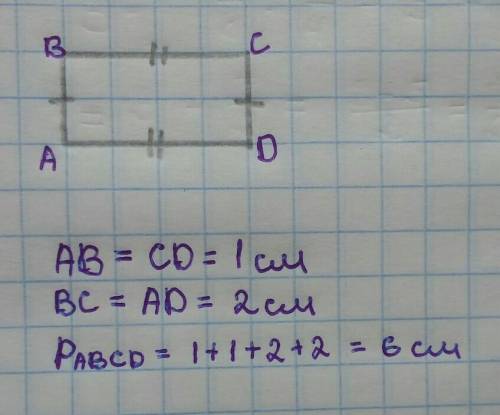 B C
A D
AB = CD = 1 см
BC = AD = 2 см
PABCD = 1+1+2+2 = 6 см